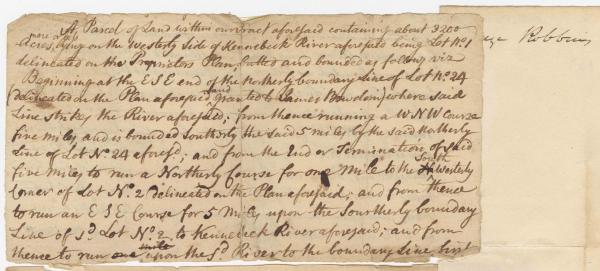 A Parcel of Land within our tract aforesaid containing about 3200
Acres, more or less lying on the Westerly Side of Kennebeck River aforesaid being Lot No. 1
delineated on the Proprietors Plan, butted and bounded as follows viz
Beginning at the E S E end of the Northerly boundary Line of Lot No. 24
(delineated on the Plan aforesaid, and granted to James Bowdoin) where said
Line strikes the River aforesaid; from thence running a W N W Course
five miles and is bounded Southerly the said 5 miles by the said Northerly
Line of Lot No. 24 aforesd.; and from the End or Termination of said
five Miles to run a Northerly Course for one Mile to the South Westerly
Corner of Lot No. 2 delineated on the Plan aforesaid; and from thence
to run an E S E Course for 5 Miles upon the Southerly boundary
Line of sd. Lot No. 2 to Kennebeck River aforesaid; and from
thence to run one mile upon the sd. River to the boundary Line first
Robbins